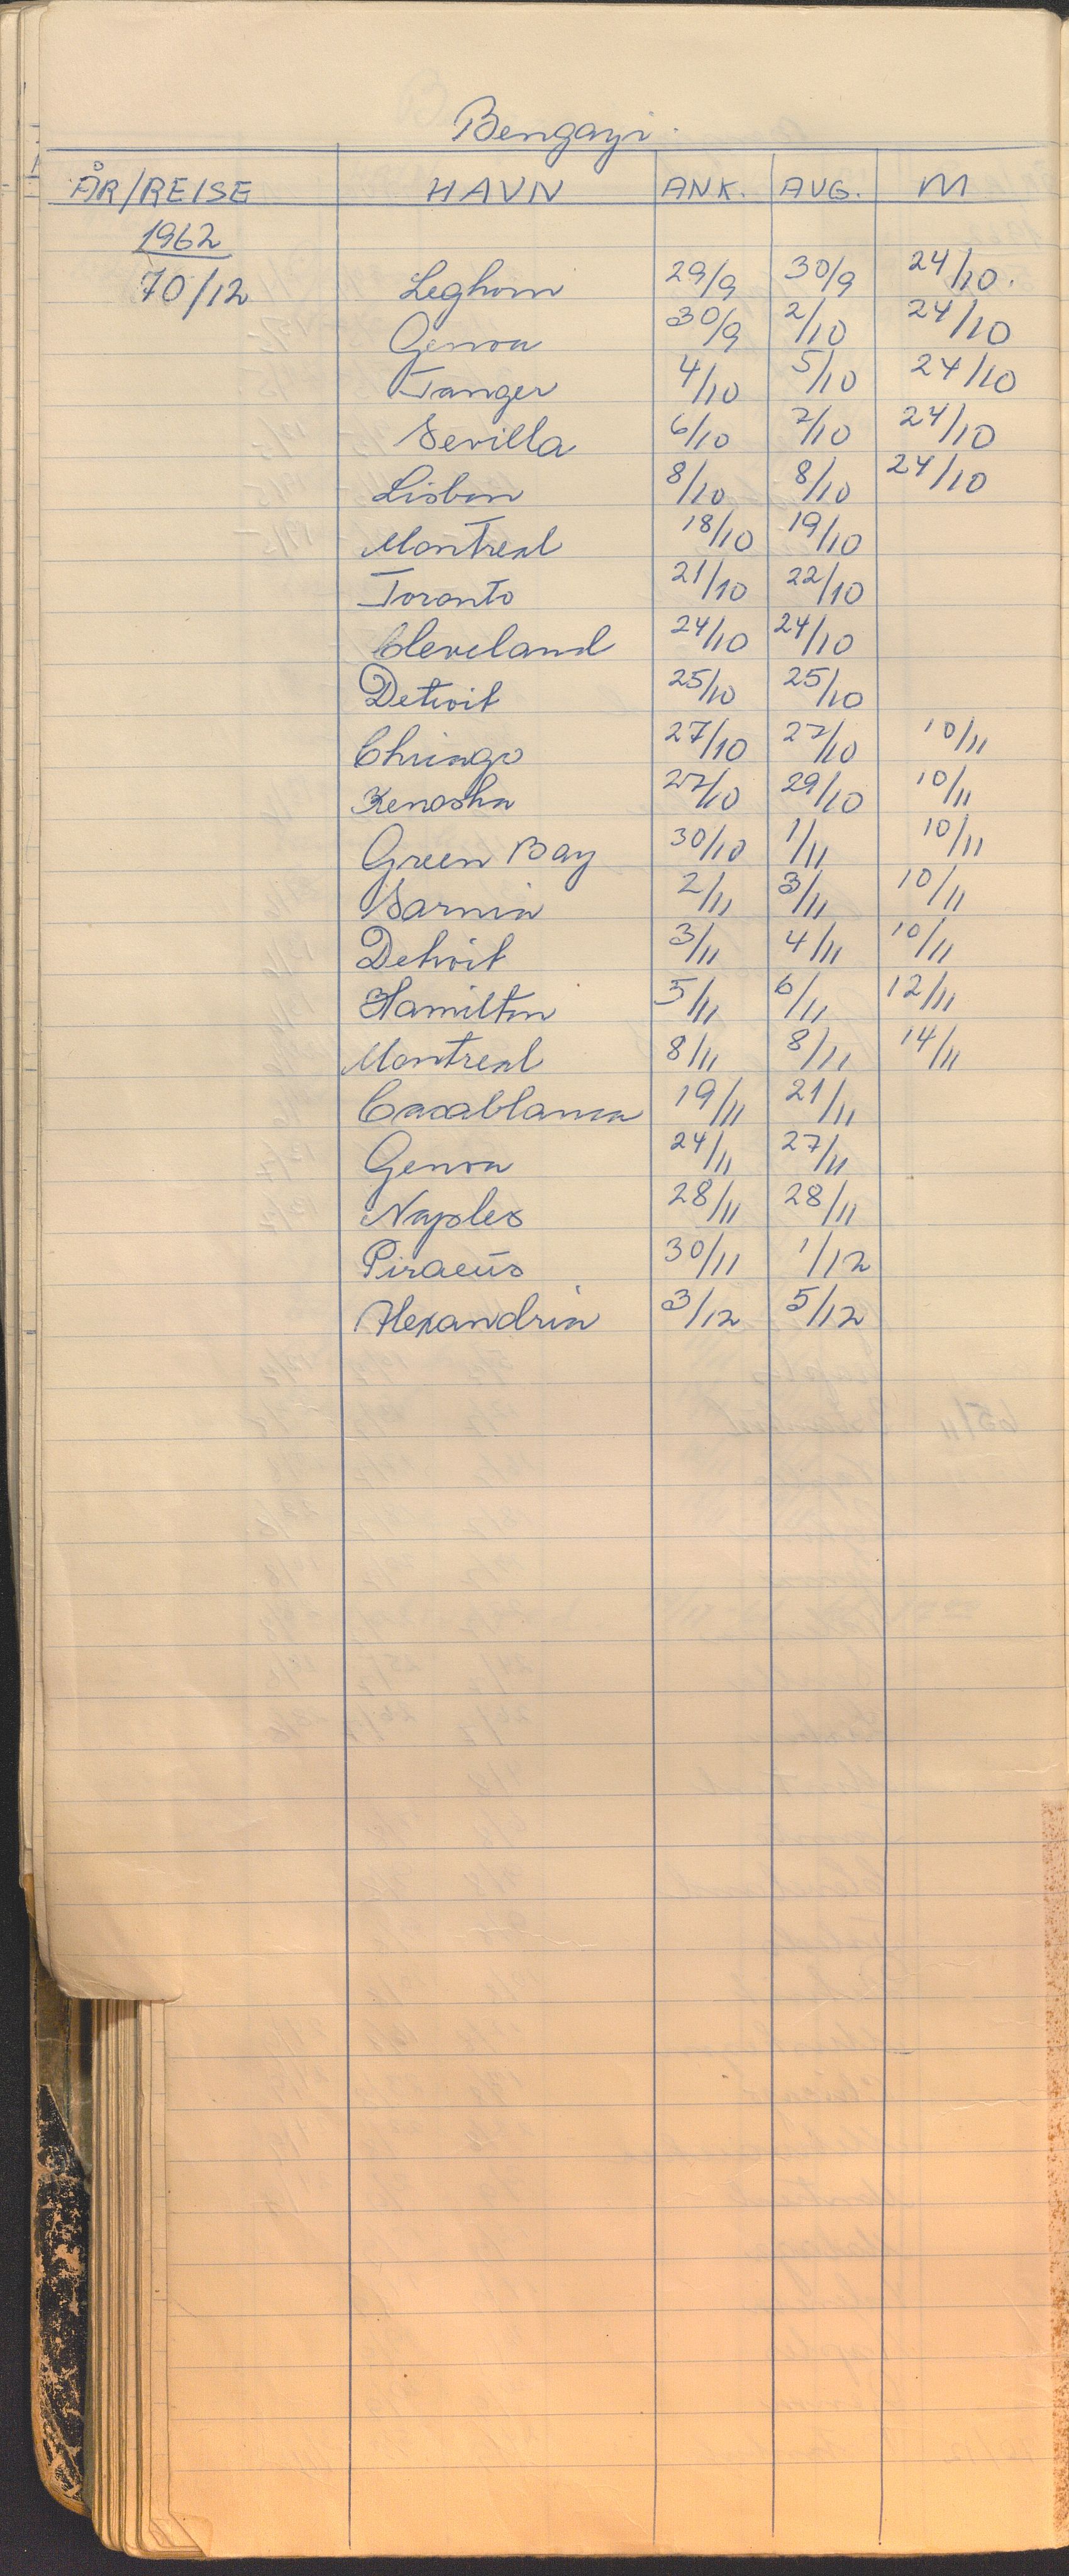 Bengazi.
ÅR/REISE HAVN ANK. AVG. M
1962
70/12 Leghorn 29/9 30/9 24/10.
Genoa 30/9 2/10 24/10
Tanger 4/10 5/10 24/10
Sevilla 6/10 7/10 24/10
Lisbon 8/10 8/10 24/10
Montreal 18/10 19/10
Toronto 21/10 22/10
Cleveland 24/10 24/10
Detroit 25/10 25/10
Chicago 27/10 27/10 10/11
Kenosha 27/10 29/10 10/11
Green Bay 30/10 1/11 10/11
Sarnia 2/11 3/11 10/11
Detroit 3/11 4/11 10/11
Hamilton 5/11 6/11 12/11
Montreal 8/11 8/11 14/11
Casablanca 19/11 21/11
Genoa 24/11 27/11
Naples 28/11 28/11
Piraeus 30/11 1/12
Alexandria 3/12 5/12